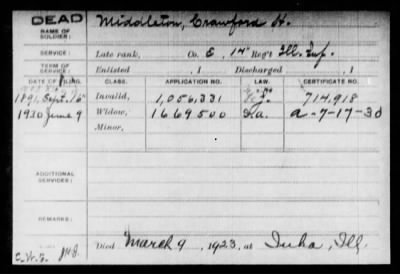 DEAD
NAME OF SOLDIER:
Middleton, Crawford H.
SERVICE:
Late rank, Co. E, 14" Reg't Ill. Inf.
TERM OF SERVICE:
Enlisted , 1 Discharged , 1
DATE OF FILING. CLASS. APPLICATION NO. LAW. CERTIFICATE NO.
1891, Sept. 16 Invalid, 1,056,331 714,918
1930 June 9 Widow, 1669500 a-7-17-30
Minor,
ADDITIONAL SERVICES:
REMARKS:
Died March 9, 1923, at Iuka, Ill.